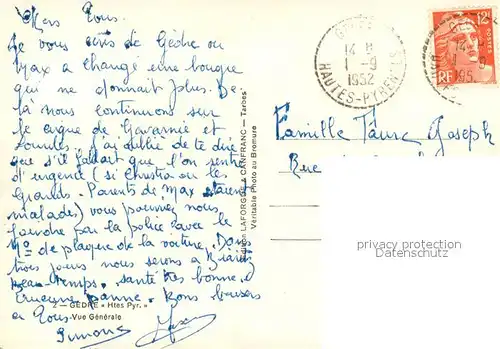 Mers Tous.
Je vous écris de Gèdre ou
Max a changé une bougie
qui ne donnait plus. De
là nous continuons sur
le cirque de Gavarnie et
Lourdes. J'ai oublié de te dire
que s'il fallait que l'on rentre
d'urgence (si Christia ou les
Grands-Parents de Max étaient
malades) vous pourriez nous
joindre par la police avec le
No de plaque de la voiture. Dans
trois jours nous serons à Biarritz
Beau temps. santé très bonne.
Aucune panne. Bons baisers
à Tous.
Simone Max
2 - GÈDRE « Htes Pyr. »
Vue Générale
Edition LAFORGUE & CANFRANC — Tarbes
Véritable Photo au Bromure
14 H
1 -9
1952
HAUTES-PYRENEES
12F
POSTES
RF
14
195
Famille Taurc Joseph
Rue
privacy protection
www.delcampe